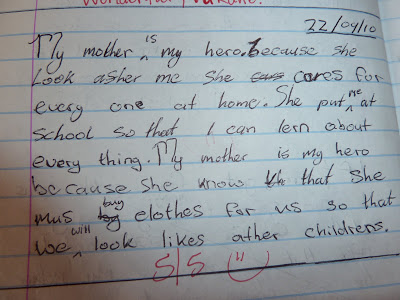 Wonderful, Vukani!
22/04/10
My mother is my hero. because she
Look asher me She cares for
every one at home. She put me at
school so that I can lern about
every thing. My mother is my hero
because She know that She
mus buy clothes for us so that
we will look likes ather childrens.
5/5